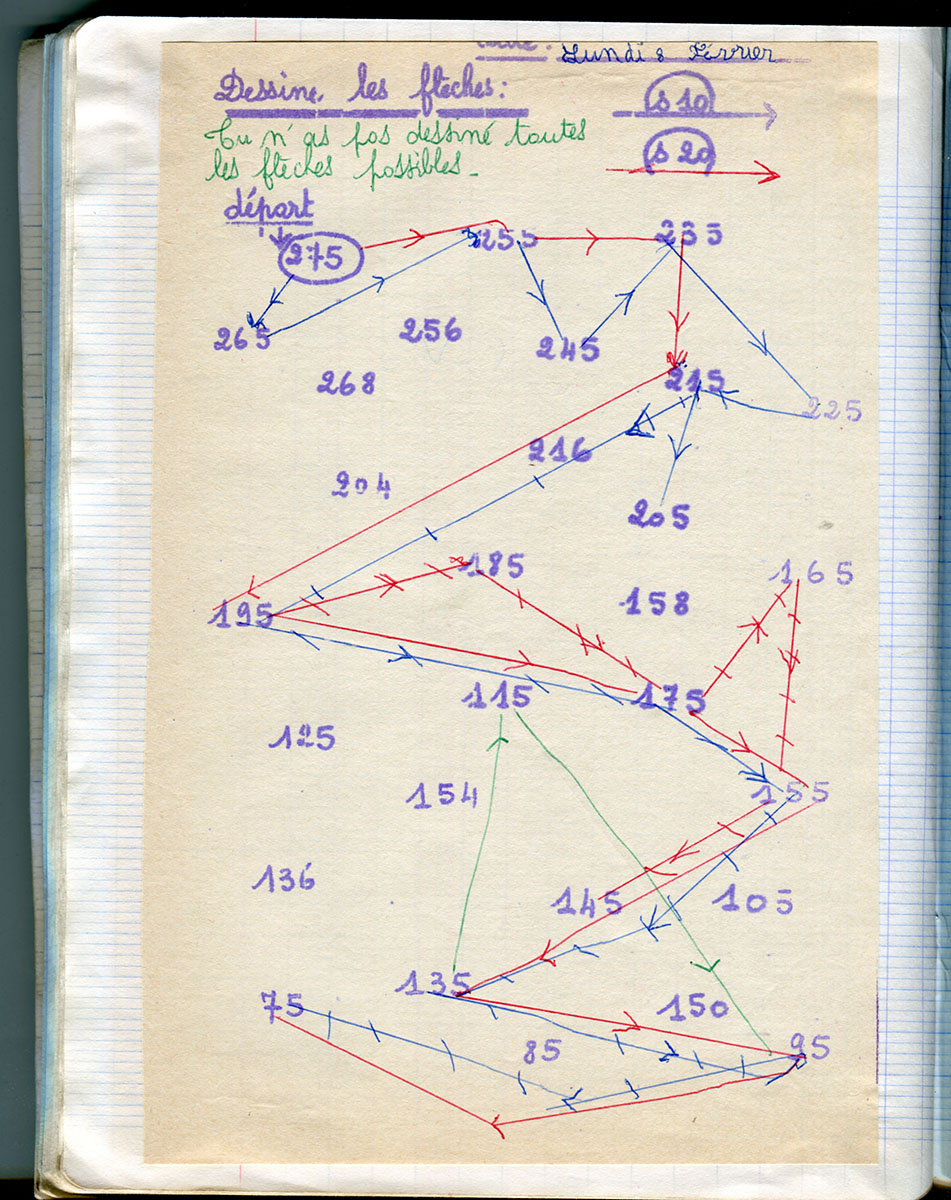 Lundi 8 Février
Dessine les flèches:
s 10
Tu n'as pas dessiné toutes
les flèches possibles.
s 20
départ
275
255
235
265
256
245
268
215
225
216
204
205
185
165
158
195
115
175
125
154
155
136
145
105
135
75
150
85
95